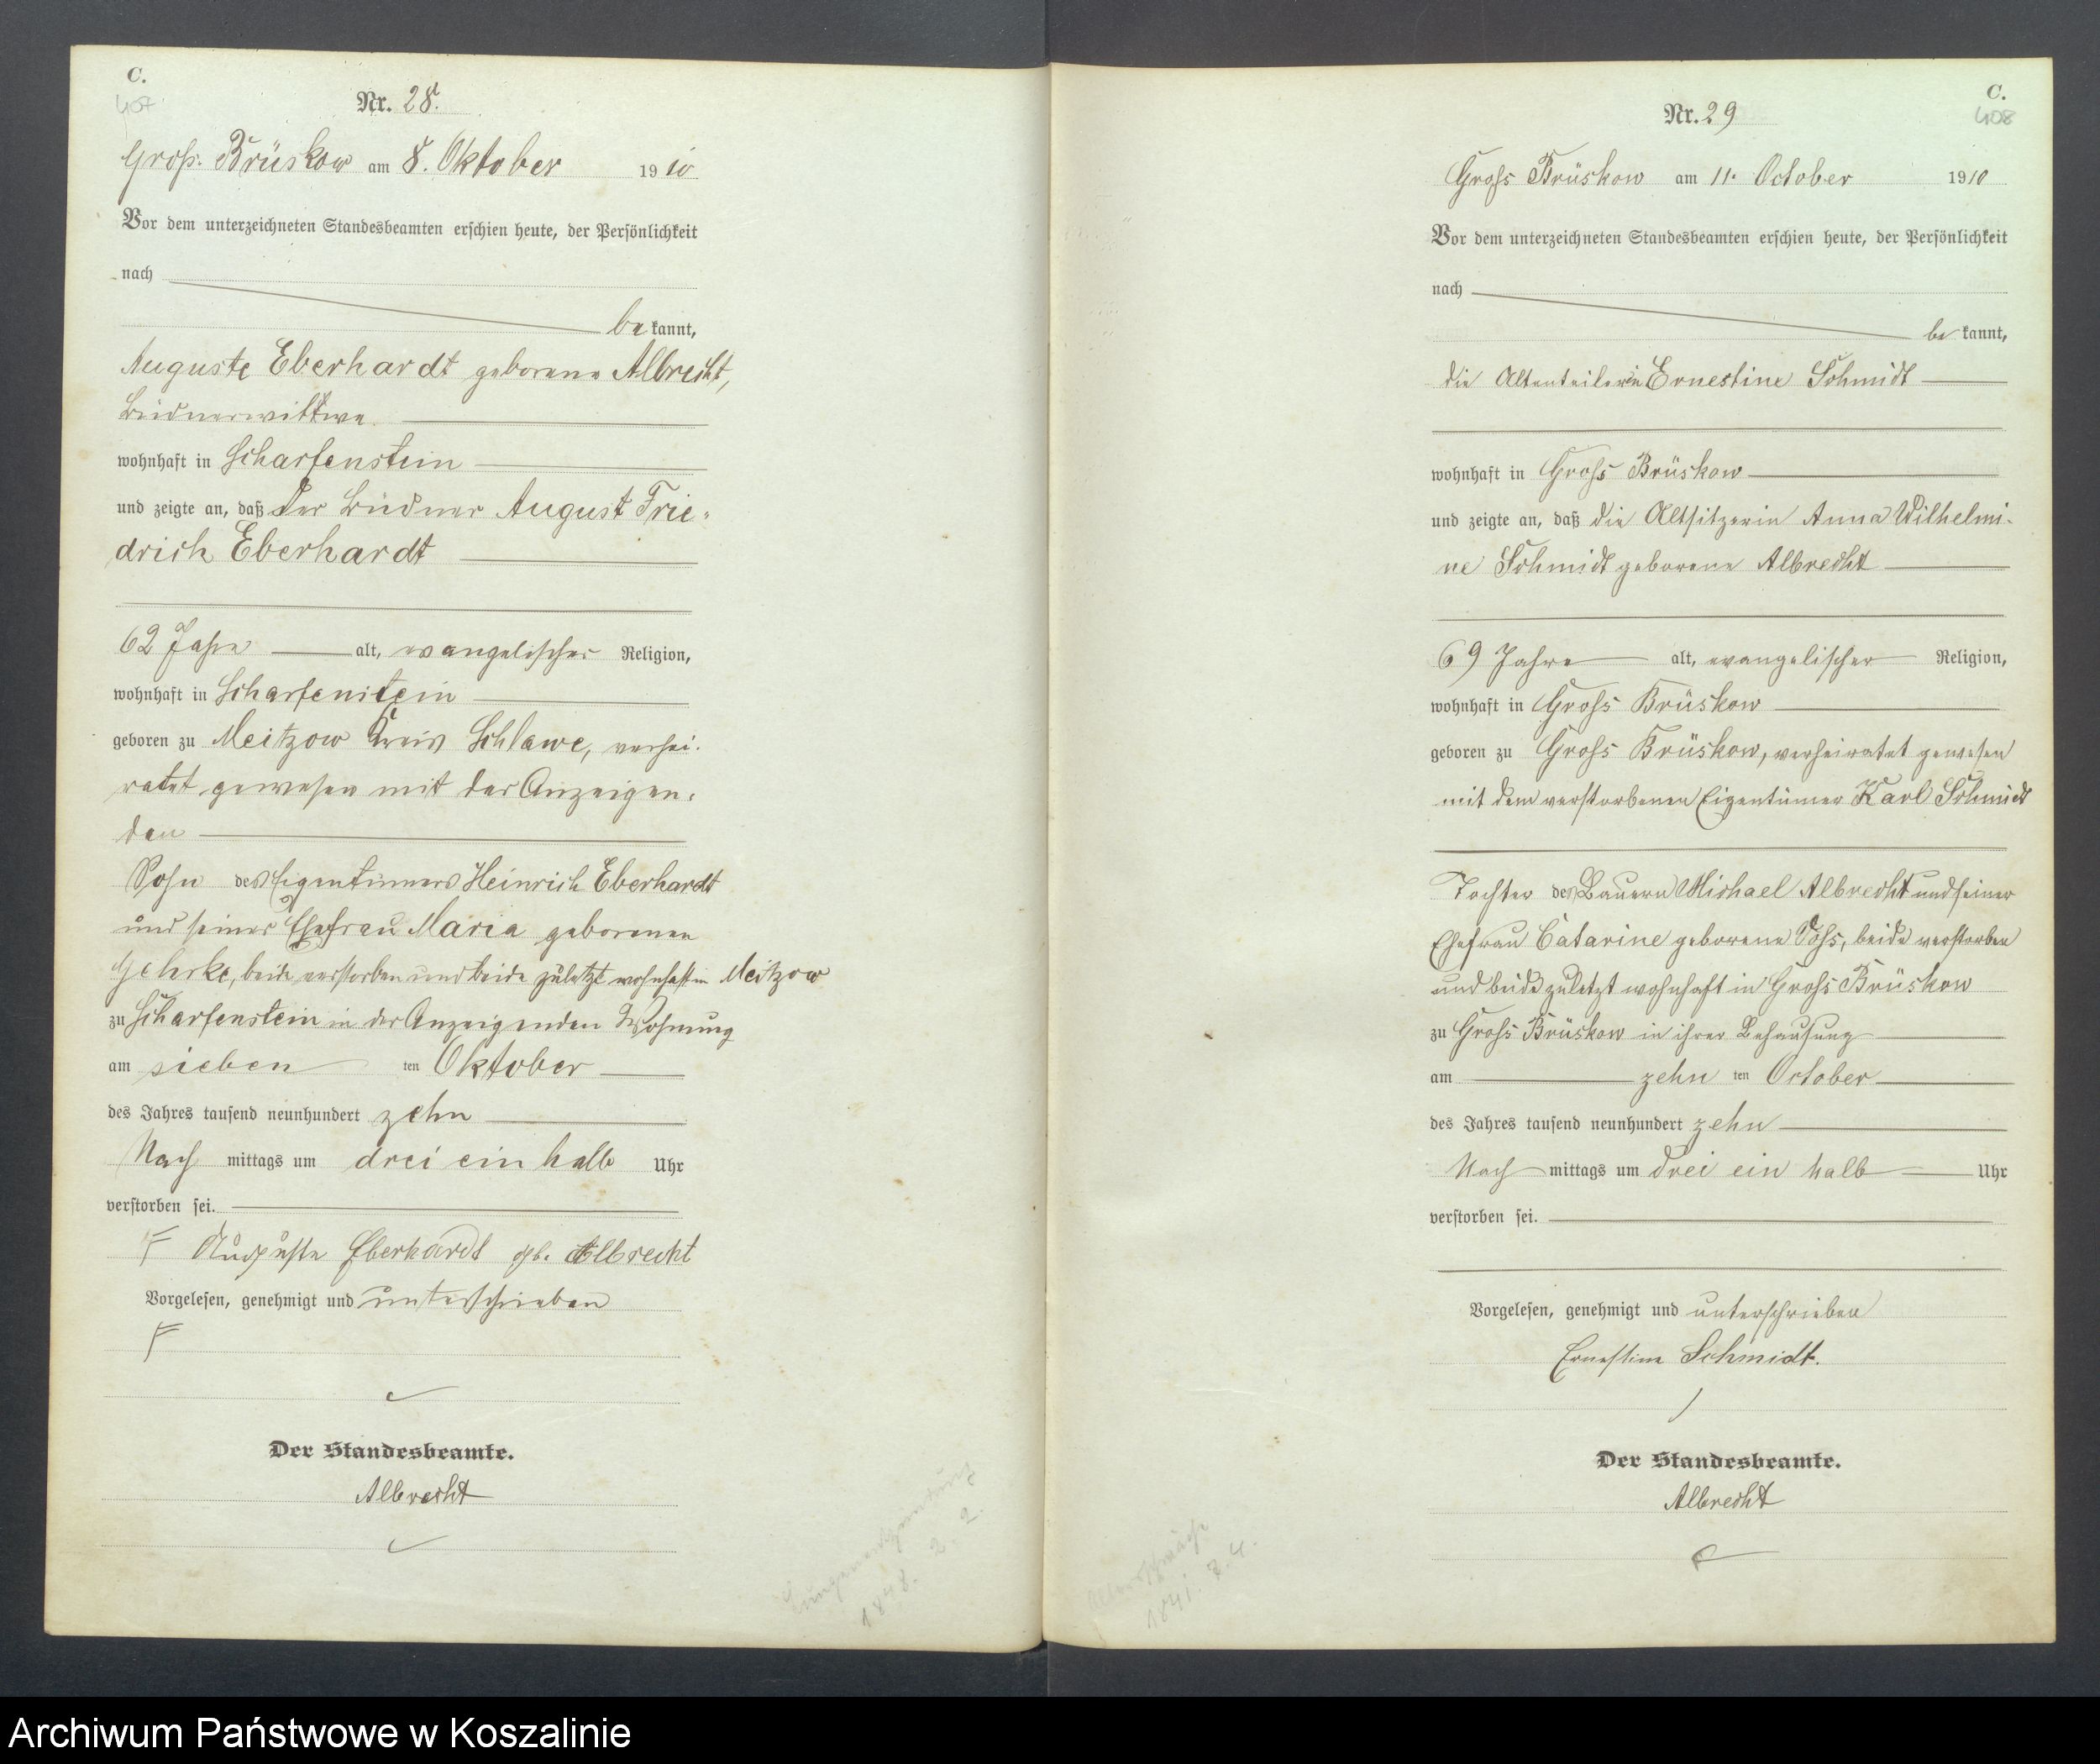 C.
407
Nr. 28.
Groß. Brüskow am 8. Oktober 1910
Vor dem unterzeichneten Standesbeamten erschien heute, der Persönlichkeit
nach
be kannt,
Auguste Eberhardt geborene Albrecht,
Büdnerwittwe
wohnhaft in Scharfenstein
und zeigte an, daß der Büdner August Frie-
drich Eberhardt
62 Jahre alt, evangelischer Religion,
wohnhaft in Scharfenstein
geboren zu Meitzow Kreis Schlawe, verhei-
ratet gewesen mit der Anzeigen-
den
Sohn des Eigentümers Heinrich Eberhardt
und seiner Ehefrau Maria geborenen
Gehrke, beide verstorben und beide zuletzt wohnhaft in Meitzow
zu Scharfenstein in der Anzeigenden Wohnung
am sieben ten Oktober
des Jahres tausend neunhundert zehn
Nach mittags um drei ein halb Uhr
verstorben sei.
Auguste Eberhardt gb. Albrecht
Vorgelesen, genehmigt und unterschrieben
Der Standesbeamte.
Albrecht
1848. 2. 2.
C.
408
Nr. 29
Groß Brüskow am 11. October 1910
Vor dem unterzeichneten Standesbeamten erschien heute, der Persönlichkeit
nach
be kannt,
die Altenteilerin Ernestine Schmidt
wohnhaft in Groß Brüskow
und zeigte an, daß die Altsitzerin Anna Wilhelmi-
ne Schmidt geborene Albrecht
69 Jahre alt, evangelischer Religion,
wohnhaft in Groß Brüskow
geboren zu Groß Brüskow, verheiratet gewesen
mit dem verstorbenen Eigentümer Karl Schmidt
Tochter des Bauern Michael Albrecht und seiner
Ehefrau Catarine geborene Voß, beide verstorben
und beide zuletzt wohnhaft in Groß Brüskow
zu Groß Brüskow in ihrer Behausung
am zehn ten October
des Jahres tausend neunhundert zehn
Nach mittags um drei ein halb Uhr
verstorben sei.
Vorgelesen, genehmigt und unterschrieben
Ernestine Schmidt.
Der Standesbeamte.
Albrecht
Altersschwäche
1841. 7. 4.
Archiwum Państwowe w Koszalinie